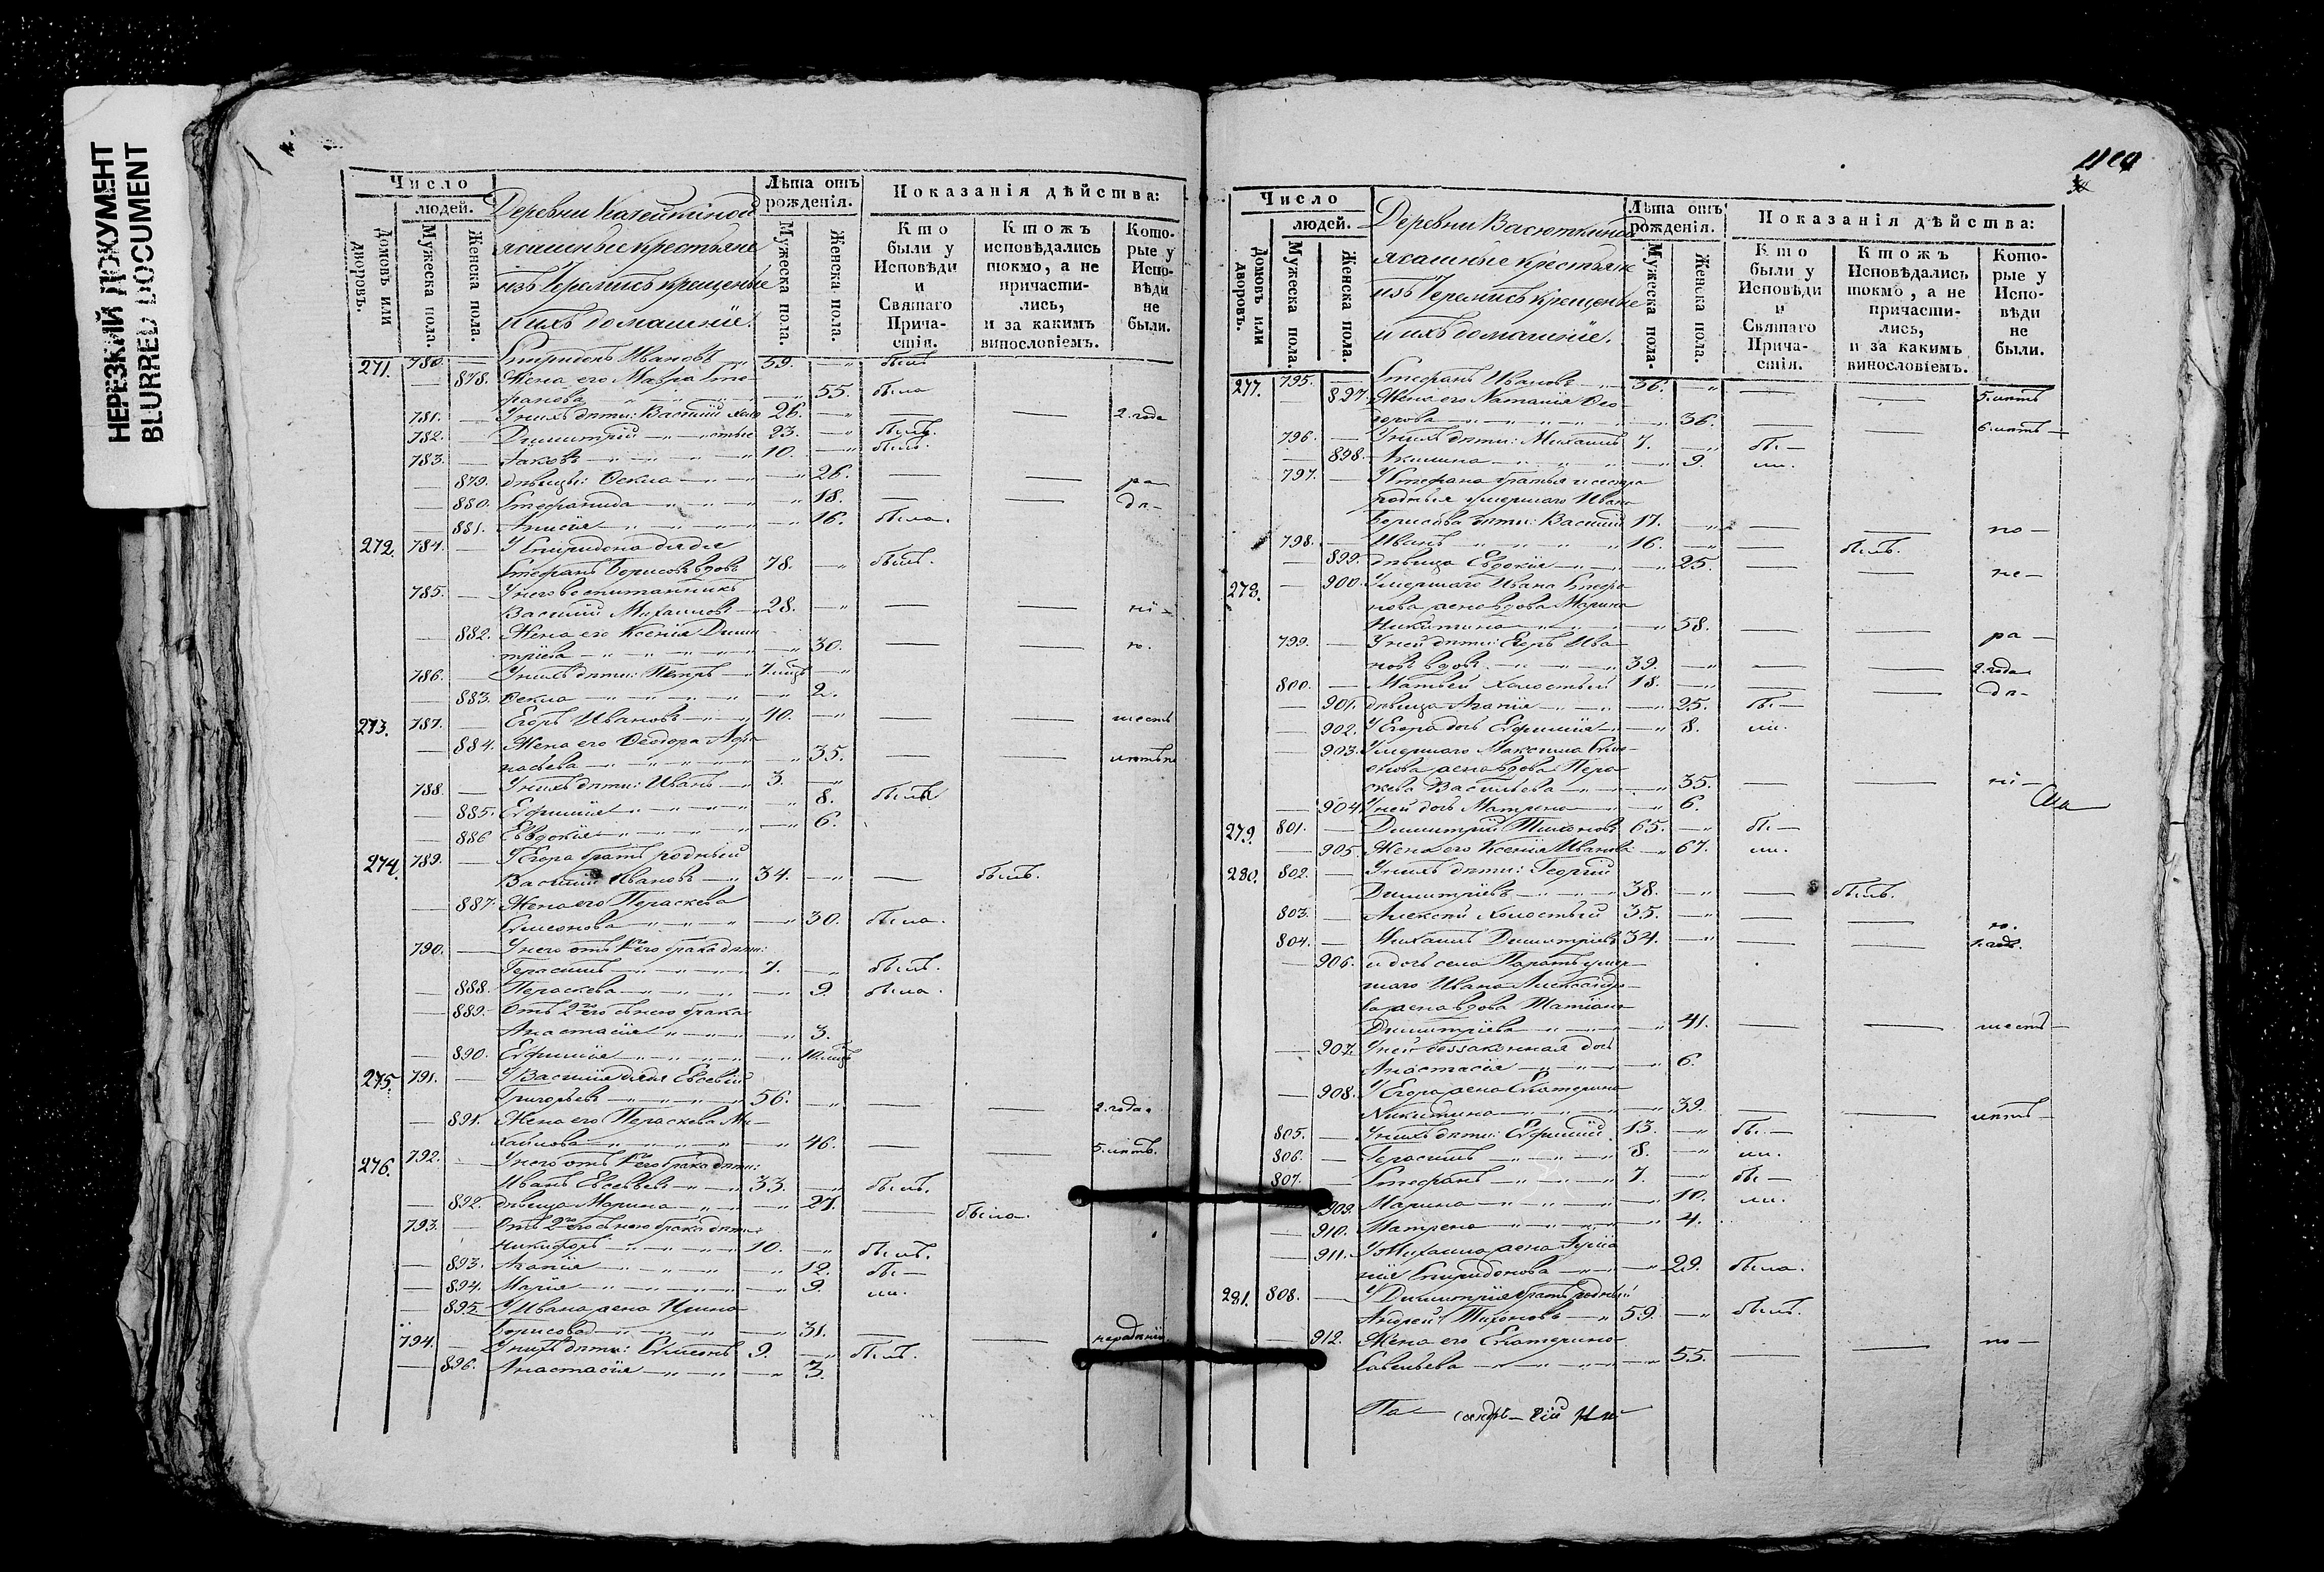 НЕРЕЗКИЙ ДОКУМЕНТ
BLURRED DOCUMENT
Число
людей.
Домовъ или дворовъ.
Мужеска пола.
Женска пола.
Деревни
ясашные крестьяне
изъ Черемисъ крещеные
и ихъ домашніе.
Лѣта отъ рожденія.
Мужеска пола.
Женска пола.
Показанія дѣйства:
Кто были у Исповѣди и Святаго Прича-стія.
Ктожъ исповѣдались токмо, а не причасти-лись, и за какимъ винословіемъ.
Кото-рые у Испо-вѣди не были.
271. 780. — Спиридонъ Ивановъ 59. — былъ
— 878. Жена его Мавра Сте-
фанова 55. была
781. — У нихъ дѣти: Василій 26. — — — 2. года
782. — Димитрій 23. — былъ.
783. — Іаковъ 10. — былъ.
— 879. дѣвицы: Ѳекла — 26. — — ра—
— 880. Стефанида — 18. — — дѣ—
— 881. Анисія — 16. была.
272. 784. — У Спиридона дядя
Стефанъ Борисовъ вдовъ 78. — былъ.
785. — У него воспитанникъ
Василій Михайловъ 28. — — — ні—
— 882. Жена его Ксенія Дими
тріева — 30. — — ю.
786. — У нихъ дѣти: Петръ 7. мцъ —
— 883. Ѳекла — 2.
273. 787. — Егоръ Ивановъ 40. — — — шесть
— 884. Жена его Ѳеодора Аѳа
насьева — 35. — — лѣтъ
788. — У нихъ дѣти: Иванъ 3. —
— 885. Евфимія — 8. былъ
— 886 Евдокія — 6.
274. 789. — У Егора братъ родный
Василій Ивановъ 34. — — былъ.
— 887. Жена его Параскева
Симеонова — 30. была.
790. — У него отъ 1го его брака дѣти:
Герасимъ 7. — былъ.
— 888. Параскева — 9. была.
— 889. Отъ 2го его съ нею брака
Анастасія — 3.
— 890. Евфимія — 10. мцъ
275. 791. — У Василія дядя Евсевій
Григорьевъ 56. — — — 2. года
— 891. Жена его Параскева Ми—
хайлова — 46. — — 5. лѣтъ.
276. 792. — У него отъ 1го его брака дѣти:
Иванъ Евсевьевъ 33. — былъ.
— 892. дѣвица Марина — 27. — была.
793. — Отъ 2го его съ нею брака дѣти:
Никифоръ 10. — былъ.
— 893. Агапія — 12. бы—
— 894. Марія — 9. ли.
— 895. У Ивана жена Ирина
Борисова — 31. — — нерадѣнію
794. — У нихъ дѣти: Симеонъ 9. — былъ.
— 896. Анастасія — 3.
Число
людей.
Домовъ или дворовъ.
Мужеска пола.
Женска пола.
Деревни Васюткиной
ясашные крестьяне
изъ Черемисъ крещеные
и ихъ домашніе.
Лѣта отъ рожденія.
Мужеска пола.
Женска пола.
Показанія дѣйства:
Кто были у Исповѣди и Святаго Прича-стія.
Ктожъ Исповѣдались токмо, а не причасти-лись, и за какимъ винословіемъ.
Кото-рые у Испо-вѣди не были.
277. 795. — Стефанъ Ивановъ 36. — — — 5. лѣтъ
— 897. Жена его Наталія Ѳео
дорова — 36. — — 6. лѣтъ —
796. — У нихъ дѣти: Михаилъ 7. — бы—
— 898. Акилина — 9. ли.
797. — У Стефана братья и сестра
родныя умершаго Ивана
Борисова дѣти: Василій 17. — — — по—
798. — Иванъ 16. — — былъ.
— 899. дѣвица Евдокія — 25. — — не—
278. — 900. Умершаго Ивана Стефа
нова жена вдова Марина
Никитина — 58. — — ра—
799. — У ней дѣти: Егоръ Ива—
новъ вдовъ 39. — — — 2. года
800. — Матвей холостый 18. — — — дѣ—
— 901. дѣвица Агапія — 25. бы—
— 902. У Егора дочь Евфимія — 8. ли.
— 903. Умершаго Максима Симе—
онова жена вдова Пара
скева Васильева — 35. — — ні—
— 904. У ней дочь Матрена — 6.
279. 801. — Димитрій Тихоновъ 65. — бы—
— 905. Жена его Ксенія Иванова — 67. ли.
280. 802. — У нихъ дѣти: Георгій
Димитріевъ 38. — — былъ.
803. — Алексѣй холостый 35. — — — ю.
804. — Михаилъ Димитріевъ 34. — — — 1. годъ.
— 906. и дочь села Паратъ умер—
шаго Ивана Александро—
ва жена вдова Татіана
Димитріева — 41. — — шесть—
— 907. У ней беззаконная дочь
Анастасія — 6.
— 908. У Егора жена Екатерина
Никитина — 39. — — лѣтъ—
805. — У нихъ дѣти: Евфимій 13. — бы—
806. — Герасимъ 8. — ли.
807. — Стефанъ 7. — бы—
909. Марина — 10. ли.
— 910. Матрена — 4.
— 911. У Михаила жена Іулiа
нія Спиридонова — 29. была.
281. 808. — У Димитрія братъ родный
Андрей Тихоновъ 59. — былъ.
— 912. Жена его Екатерина
Савельева — 55. — — по—